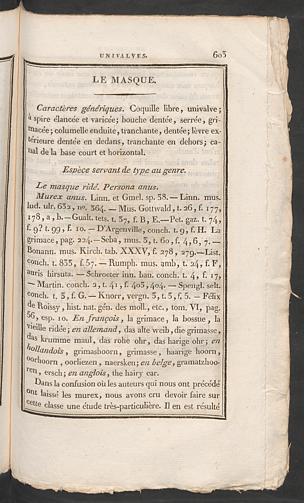 UNIVALVES. 603
LE MASQUE.
Caractères génériques. Coquille libre, univalve;
à spire élancée et varicée; bouche dentée, serrée, gri-
macée; columelle enduite, tranchante, dentée; lèvre ex-
térieure dentée en dedans, tranchante en dehors; ca-
nal de la base court et horizontal.
Espèce servant de type au genre.
Le masque ridé. Persona anus.
Murex anus. Linn. et Gmel. sp. 38. — Linn. mus.
lud. ulr. 632, no. 364. — Mus. Gottwald, t. 26, f. 177,
178, a, b. — Gualt. tets. t. 37, f. B, E. — Pet. gaz. t. 74,
f. 9? t. 99, f. 10. — D'Argenville, conch. t. 9, f. H. La
grimace, pag. 224. — Seba, mus. 3, t. 60, f. 4, 6, 7. —
Bonann. mus. Kirch. tab. XXXV, f. 278, 279. — List.
conch. t. 833, f. 57. — Rumph. mus. amb, t. 24, f. F,
auris hirsuta. — Schroeter inn. bau. conch. t. 4, f. 17,
— Martin. conch. 2, t. 41, f. 403, 404. — Spengl. selt.
conch. t. 3, f. G. — Knorr, vergn. 3, t. 3, f. 5. — Félix
de Roissy, hist. nat. gén. des moll., etc., tom. VI, pag.
56, esp. 10. En françois, la grimace, la bossue, la
vieille ridée; en allemand, das alte weib, die grimasse,
das krumme maul, das rohe ohr, das harige ohr; en
hollandois, grimashoorn, grimasse, haarige hoorn,
oorhoorn, oorliezen, naersken; en belge, gramatzhoo-
ren, ersch; en anglois, the hairy ear.
Dans la confusion où les auteurs qui nous ont précédé
ont laissé les murex, nous avons cru devoir faire sur
cette classe une étude très-particulière. Il en est résulté